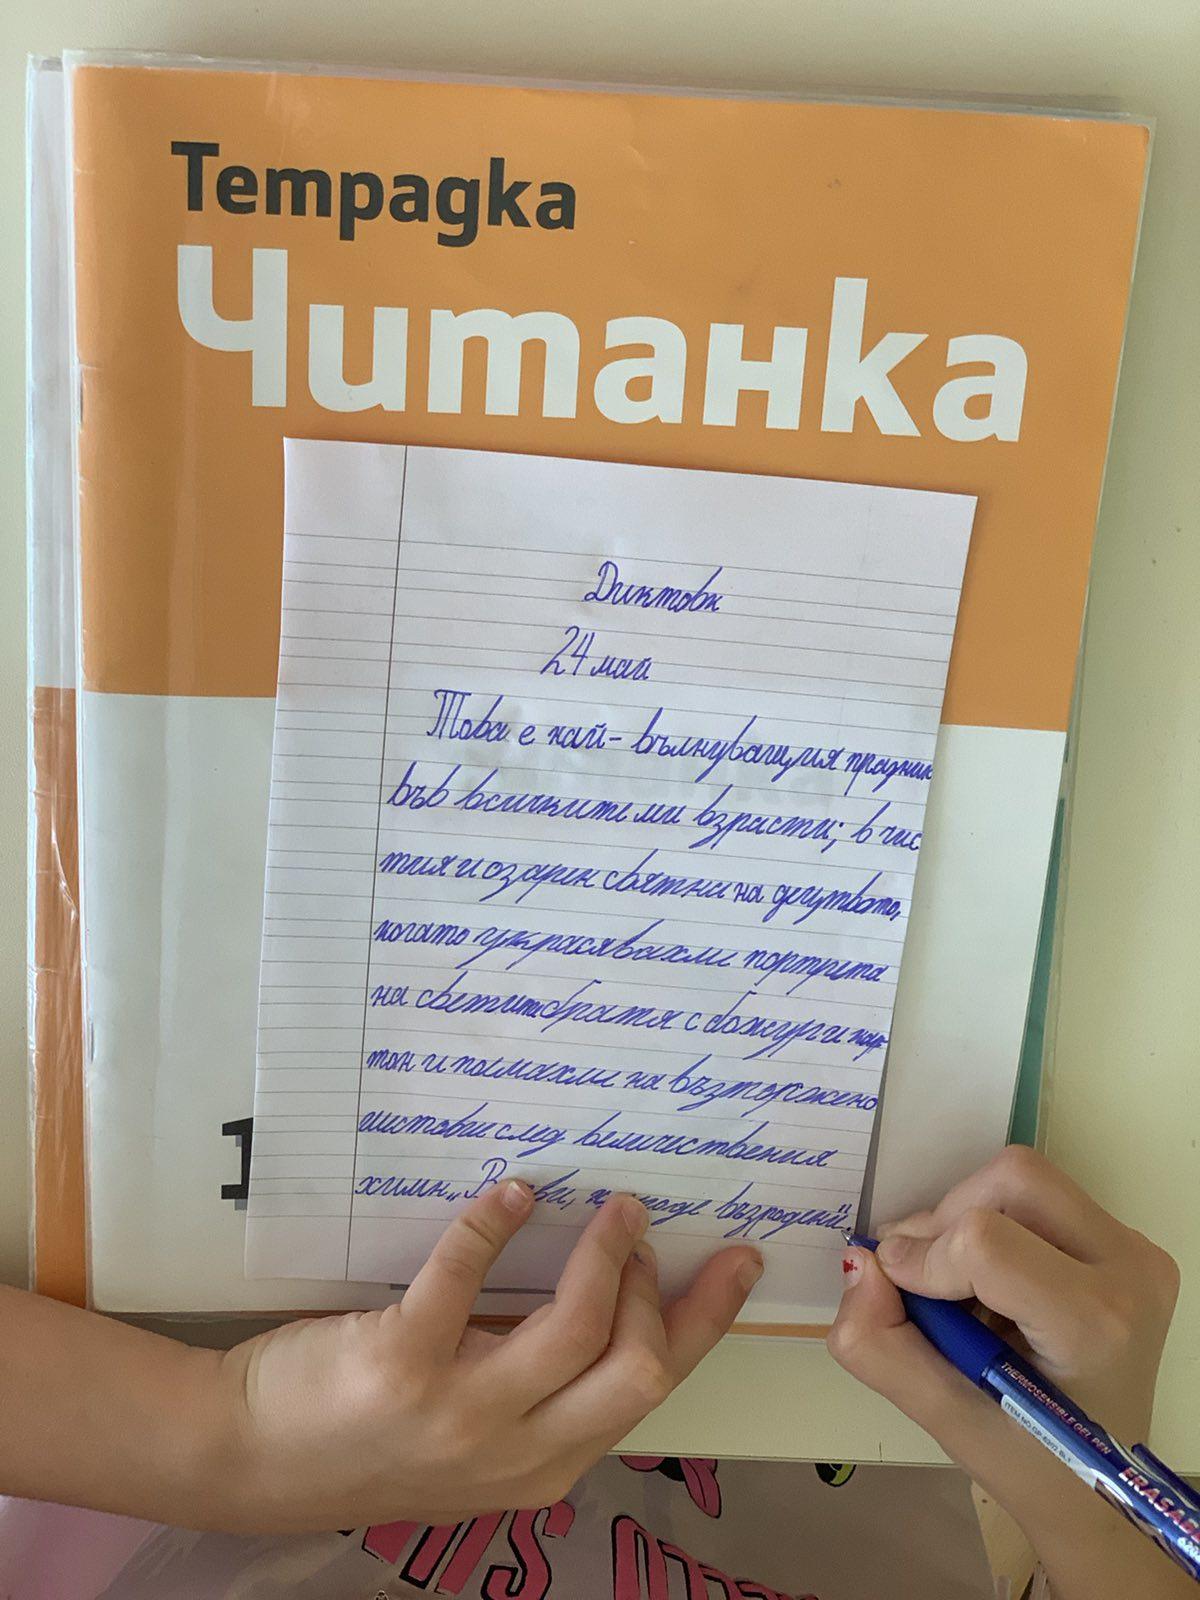 Тетрадка
Читанка
Диктовк
24 май
Това е най-вълнуващия празник
във всичките ми възрасти; в чис
тия и озарен свят ни на децтвото,
когато украсявахме портрета
на светите братя с божури и
и помахме на възторжено
след величествения
химн „В ви, възродени".
THERMOSENSIBLE GEL PEN
ERASABL